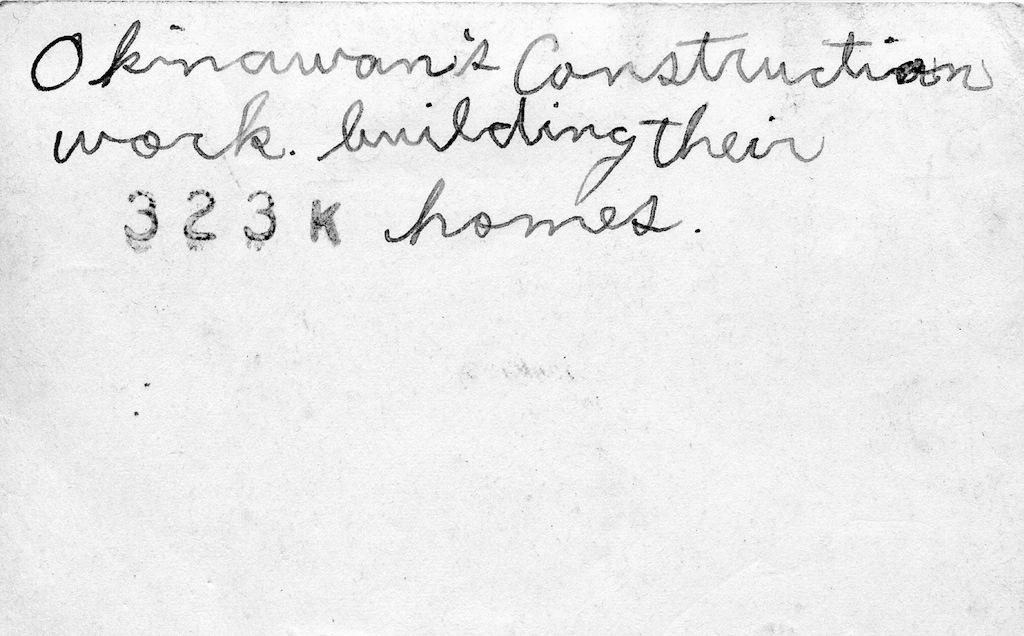 Okinawan's Construction
work. building their
323K homes.